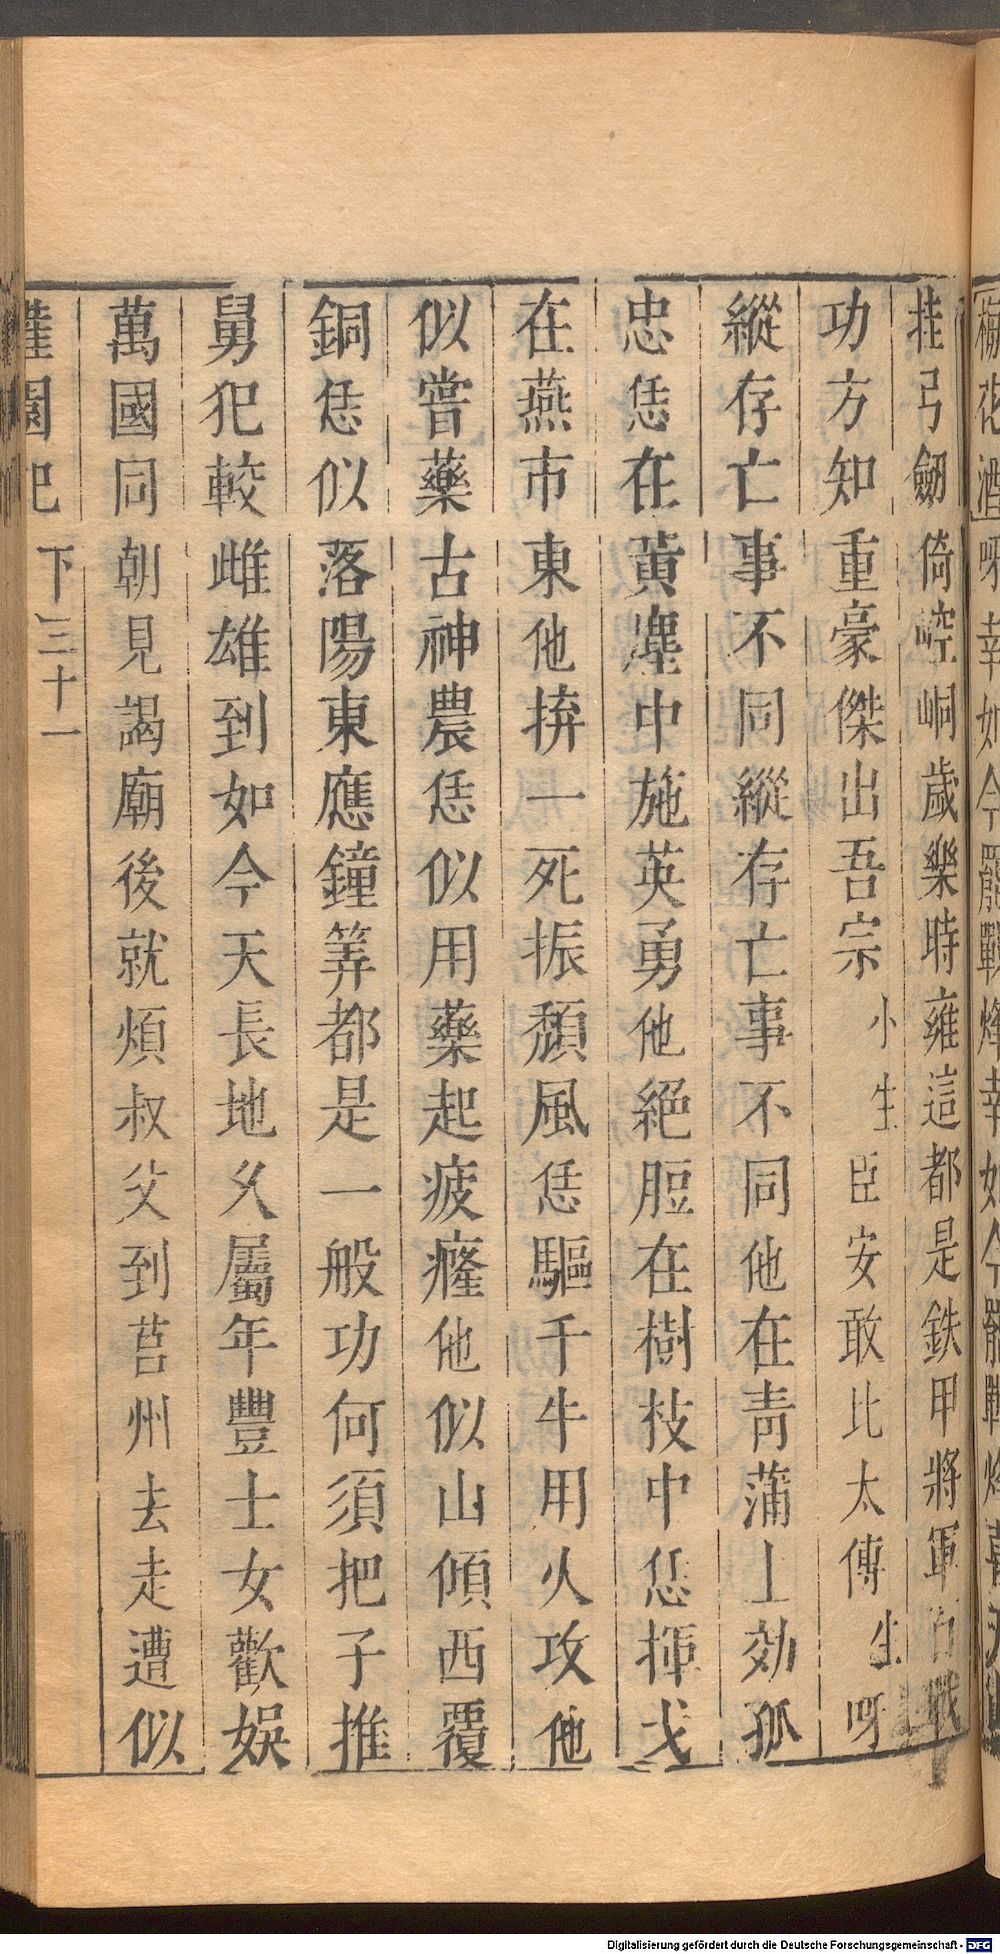 挂弓劒倚崆峒歲樂時雍這都是鉄甲將軍百戰
功方知重豪傑出吾宗小生臣安敢比太傅生呀
縱存亡事不同縱存亡事不同他在青蒲上効孤
忠恁在黄塵中施英勇他絕脰在樹枝中恁揮戈
在燕市東他拚一死振頽風恁驅千牛用火攻他
似嘗藥古神農恁似用藥起疲癃他似山傾西覆
銅恁似落陽東應鐘筭都是一般功何須把子推
舅犯較雌雄到如今天長地久屬年豐士女歡娱
萬國同朝見謁廟後就煩叔父到莒州去走遭似
下三十一
Digitalisierung gefördert durch die Deutsche Forschungsgemeinschaft - DFG